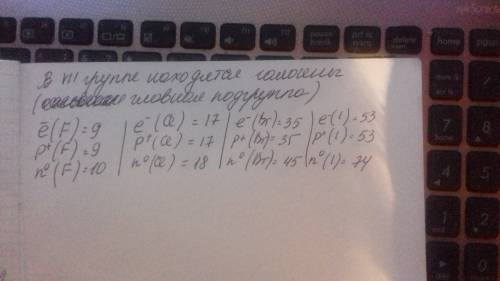 В VII группе находятся галогены
( главная подгруппа)
e⁻(F)=9 | e⁻(Cl)=17 | e⁻(Br)=35 | e⁻(I)=53
p⁺(F)=9 | p⁺(Cl)=17 | p⁺(Br)=35 | p⁺(I)=53
n⁰(F)=10 | n⁰(Cl)=18 | n⁰(Br)=45 | n⁰(I)=74
pause break
prt sc
delete
home
pgup